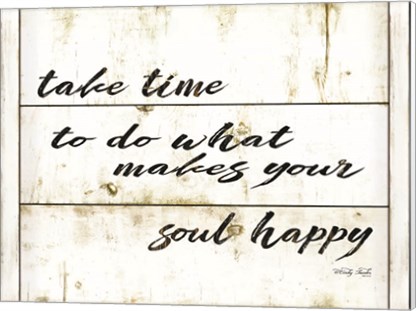 take time
to do what
makes your
soul happy